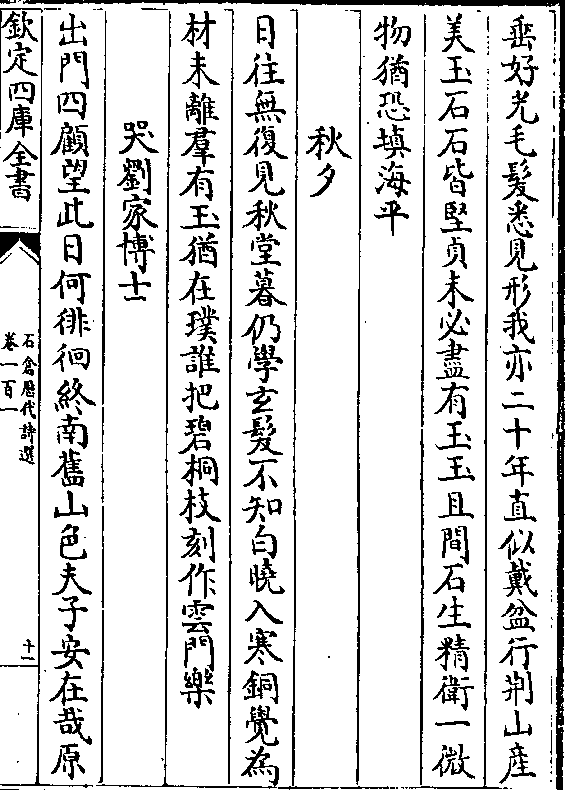 垂好光毛髮悉見形我亦二十年直似戴盆行荆山産
美玉石石皆堅貞未必盡有玉玉且間石生精衛一微
物猶恐填海平
秋夕
日往無復見秋堂暮仍學玄髮不知白曉入寒銅覺為
材未離羣有玉猶在璞誰把碧桐枝刻作雲門樂
哭劉家博士
出門四顧望此日何徘徊終南舊山色夫子安在哉原
欽定四庫全書
石倉歴代詩選
卷一百一
十一